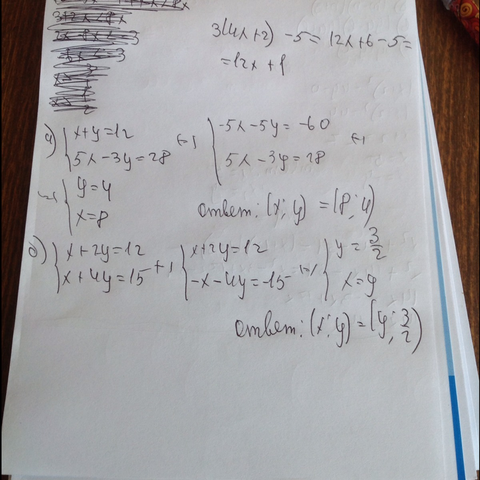 3(4x+2) -5 = 12x+6-5 =
= 12x+1
а) { x+y=12 { -5x-5y=-60
5x-3y=28 5x-3y=28
{ y=4
x=8 ответ: (x; y) = (8; 4)
б) { x+2y=12 { x+2y=12 { y=3/2
x+4y=15 -x-4y=-15 x=9
ответ: (x; y) = (9; 3/2)